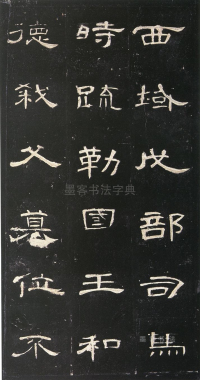 西域戊部司馬
時疏勒國王和
德弒父篡位不
墨客书法字典